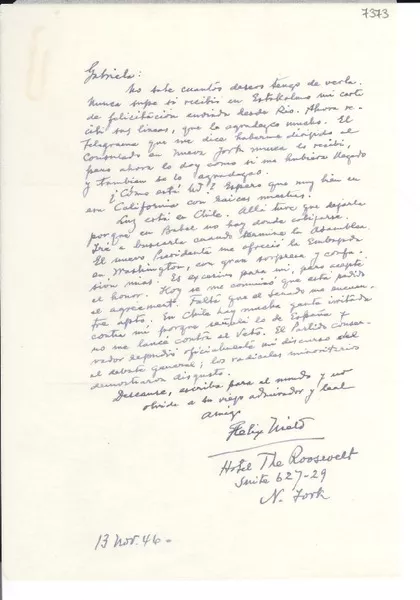 7373
Gabriela:
No sabe cuantos deseos tengo de verla.
Nunca supe si recibió en Estokolmo mi carta
de felicitación enviada desde Rio. Ahora re-
cibí sus líneas, que le agradezco mucho. El
Telegrama que me dice haberme dirigido al
Consulado en Nueva York nunca lo recibí,
pero ahora lo doy como si me hubiera llegado
y tambien se lo agradezco.
¿Cómo está Ud? Espero que muy bien en
esa California con raices nuestras.
Luz está en Chile. Allí tuve que dejarla
porque en Babel no hay donde cobijarse.
Iré a buscarla cuando termine la Asamblea.
El nuevo Presidente me ofreció la Embajada
en Washington, con gran sorpresa y confu-
sión mias. Es excesivo para mi, pero acepté
el honor. Hoy se me comunicó que está pedido
el agreement. Falta que el Senado me encuen-
tre apto. En Chile hay mucha gente irritada
contra mi porque señalé lo de España y
no me lancé contra el Veto. El Partido Conser-
vador repudió oficialmente mi discurso del
el debate general; los radicales minoritarios
demostraron disgusto.
Descanse, escriba para el mundo y no
olvide a su viejo admirador y leal
amigo
Félix Nieto
Hotel The Roosevelt
Suite 627-29
N. York
13 Nov. 46-